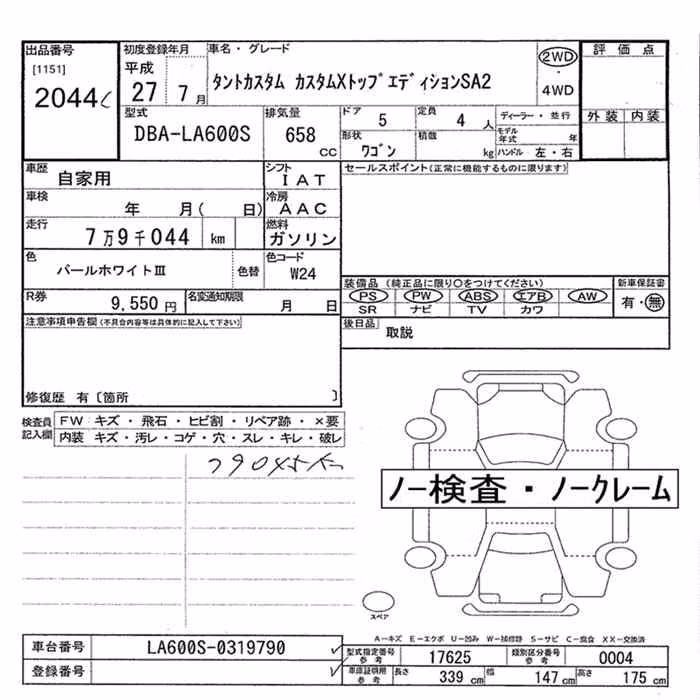 出品番号
[1151]
2044
初度登録年月
平成
27 7 月
車名・グレード
タントカスタム カスタムXトップエディションSA2
2WD
・
4WD
評価点
外装 内装
型式
DBA-LA600S
排気量
658 CC
ドア 5
定員 4 人
ディーラー・並行
形状 ワゴン
積載 kg
モデル年式 年
ハンドル 左・右
車歴
自家用
シフト
IAT
セールスポイント(正常に機能するものに限ります)
車検
年 月( 日)
冷房
AAC
走行
7万9千044 km
燃料
ガソリン
色
パールホワイトⅢ
色替
色コード
W24
装備品 (純正品に限り〇をつけてください)
新車保証書
PS PW ABS エアB AW
SR ナビ TV カワ
有・無
R券
9,550 円
名変通知期限
月 日
後日品
取説
注意事項申告欄(不具合内容等は具体的に記入して下さい)
修復歴 有〔箇所 〕
検査員記入欄
FW キズ ・ 飛石 ・ ヒビ割 ・ リペア跡 ・ ×要
内装 キズ・汚レ・コゲ・穴・スレ・キレ・破レ
ノー検査・ノークレーム
スペア
A-キズ E-エクボ U-凹み W-補修跡 S-サビ C-腐食 XX-交換済
車台番号
LA600S-0319790
登録番号
型式指定番号
参考
17625
類別区分番号
参考
0004
車庫証明用
参考
長さ 339 cm
幅 147 cm
高さ 175 cm